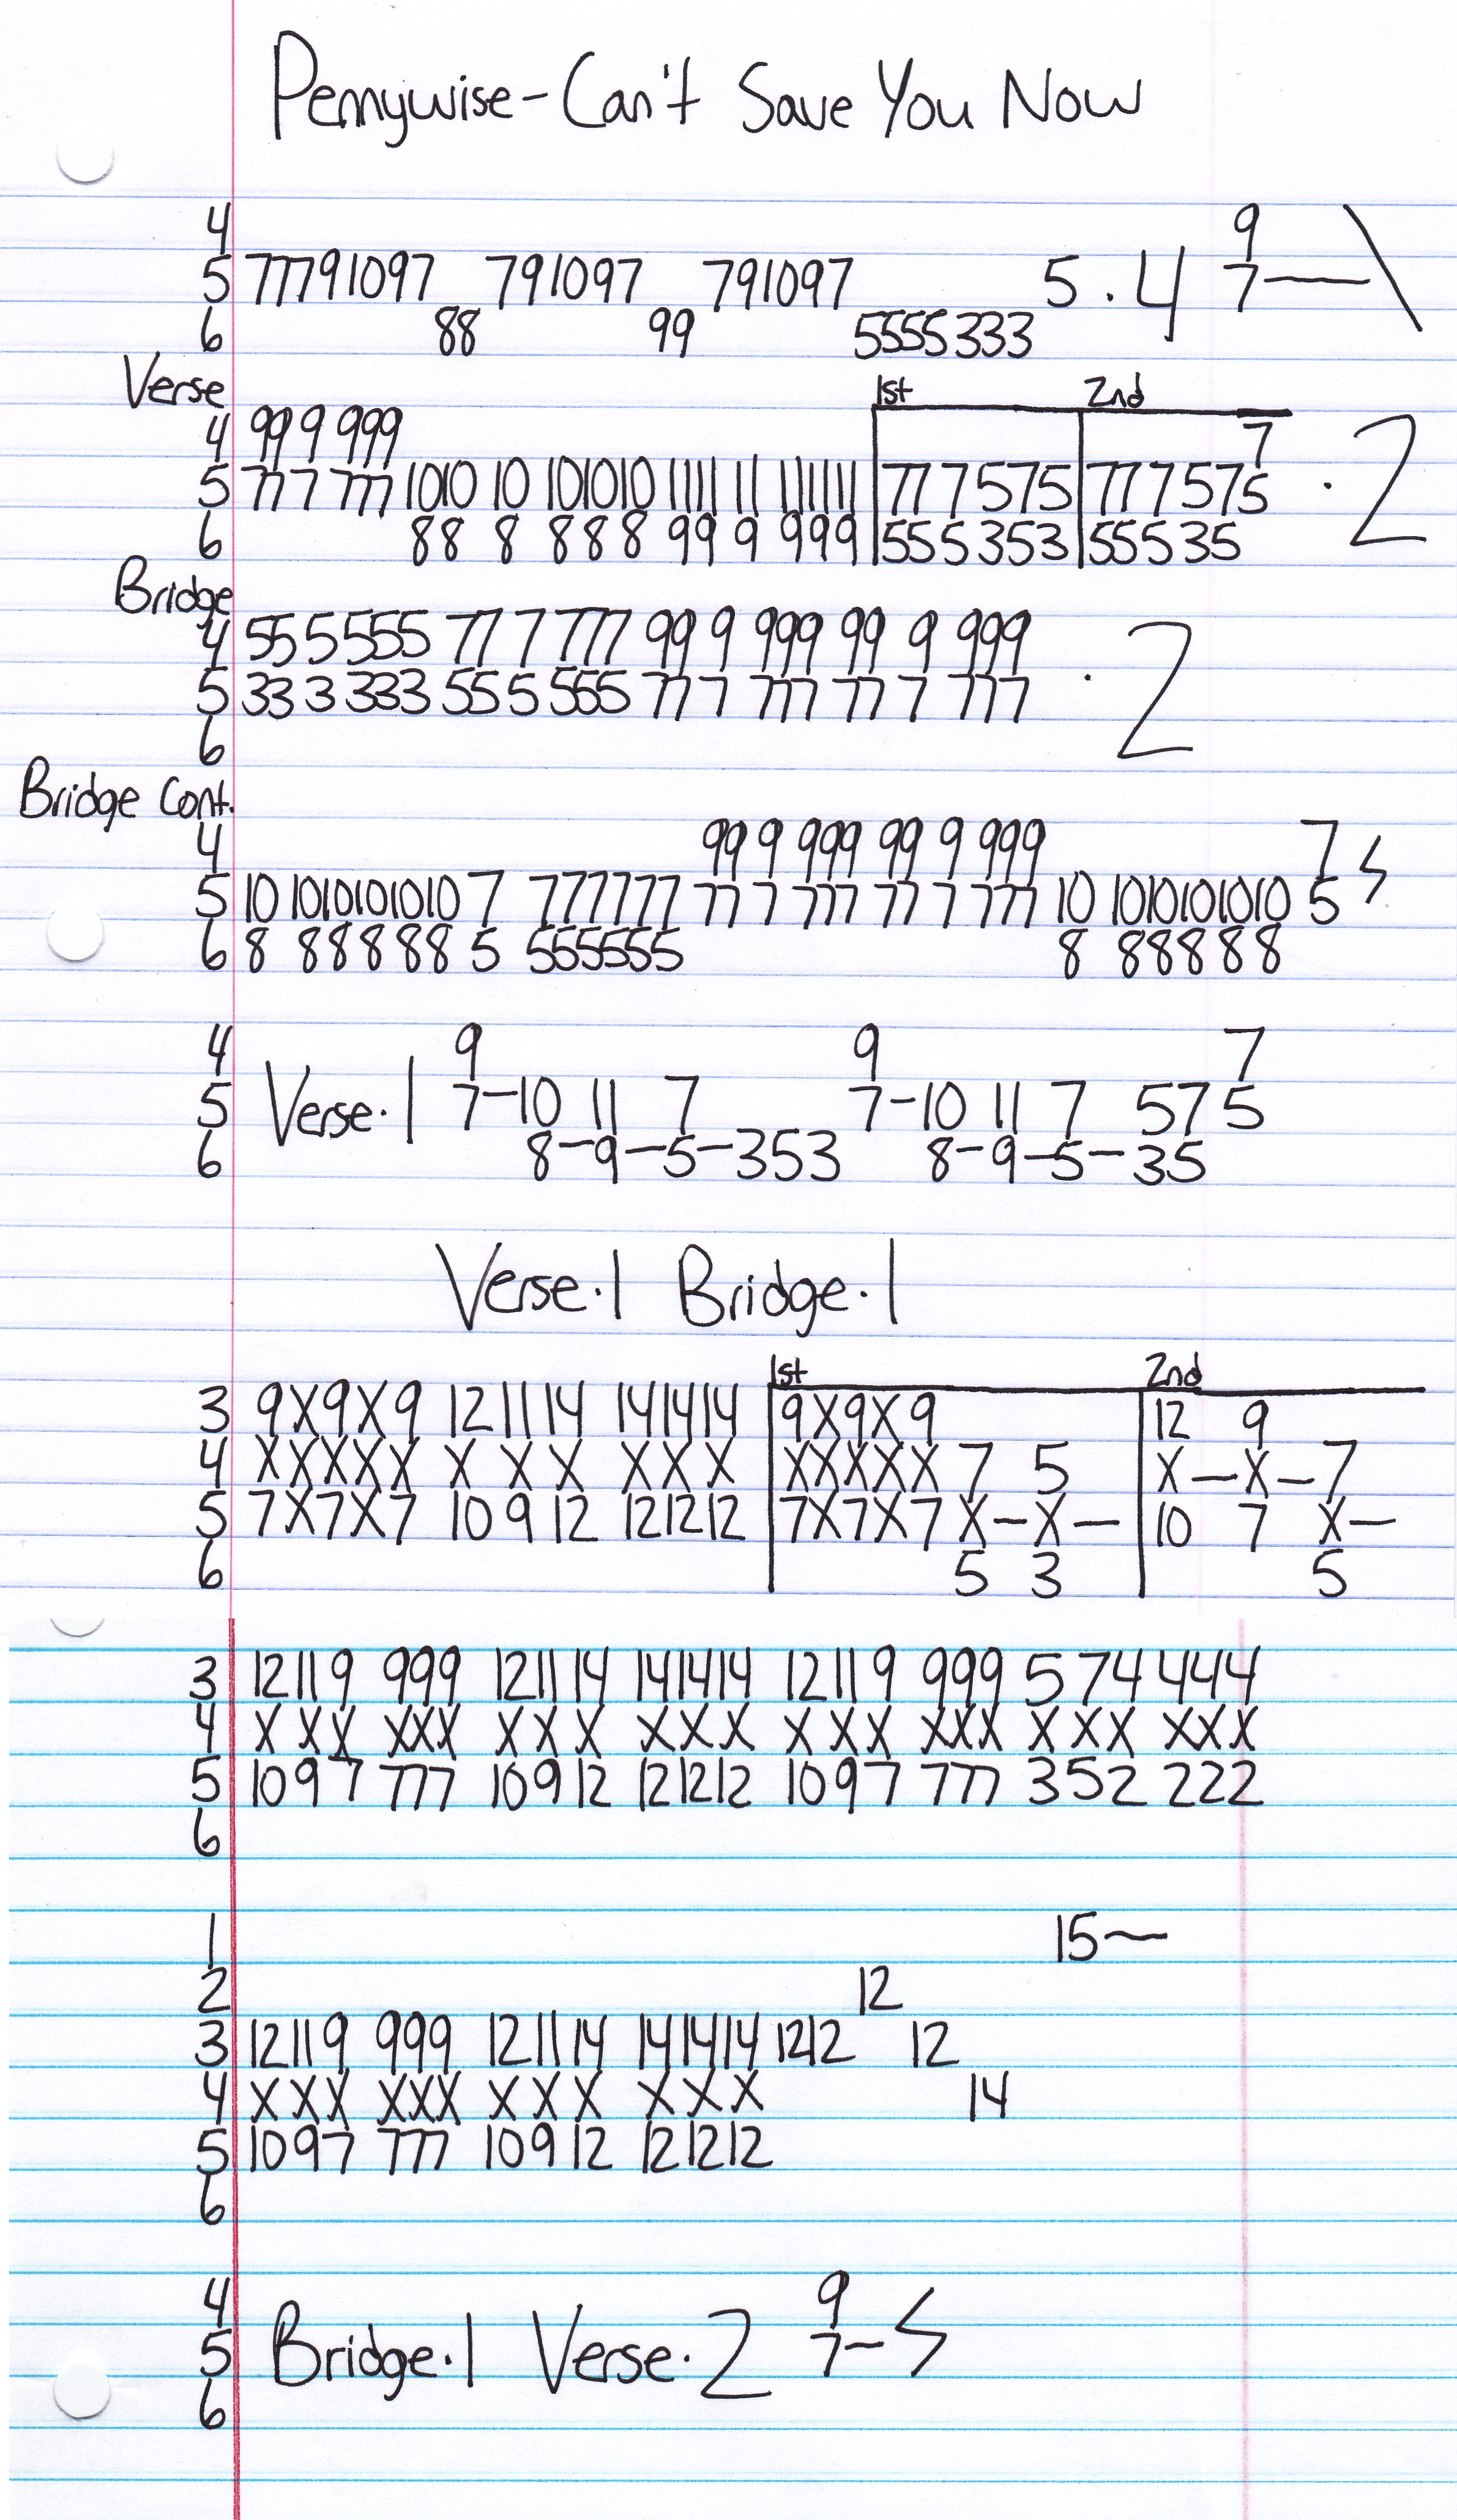 Pennywise - Can't Save You Now
4 9
5 77791097 791097 791097 5 . 4 7— \
6 88 99 5555333
Verse 1st 2nd
4 99 9 999 7
5 77 7 777 1010 10 101010 1111 11 111111 77 7 575 77 7 575 . 2
6 88 8 888 99 9 999 555 353 555 35
Bridge
4 55 5 555 77 7 777 99 9 999 99 9 999
5 33 3 333 55 5 555 77 7 777 77 7 777 . 2
6
Bridge Cont.
4 99 9 999 99 9 999 7
5 10 1010101010 7 777777 77 7 777 77 7 777 10 1010101010 5
6 8 88888 5 555555 8 88888
4 9 9 7
5 Verse . 1 7-10 11 7 7-10 11 7 57 5
6 8-9-5-353 8-9-5-35
Verse . 1 Bridge . 1
1st 2nd
3 9X9X9 12 11 14 14 14 14 9X9X9 12 9
4 XXXXX X X X X X X XXXXX 7 5 X-X-7
5 7X7X7 10 9 12 12 12 12 7X7X7 X-X- 10 7 X-
6 5 3 5
3 12 11 9 999 12 11 14 14 14 14 12 11 9 999 5 7 4 444
4 X X X XXX X X X X X X X X X XXX X X X XXX
5 10 9 7 777 10 9 12 12 12 12 10 9 7 777 3 5 2 222
6
1 15~
2 12
3 12 11 9 999 12 11 14 14 14 14 12 12 12
4 X X X XXX X X X X X X 14
5 10 9 7 777 10 9 12 12 12 12
6
4 9
5 Bridge . 1 Verse . 2 7-
6